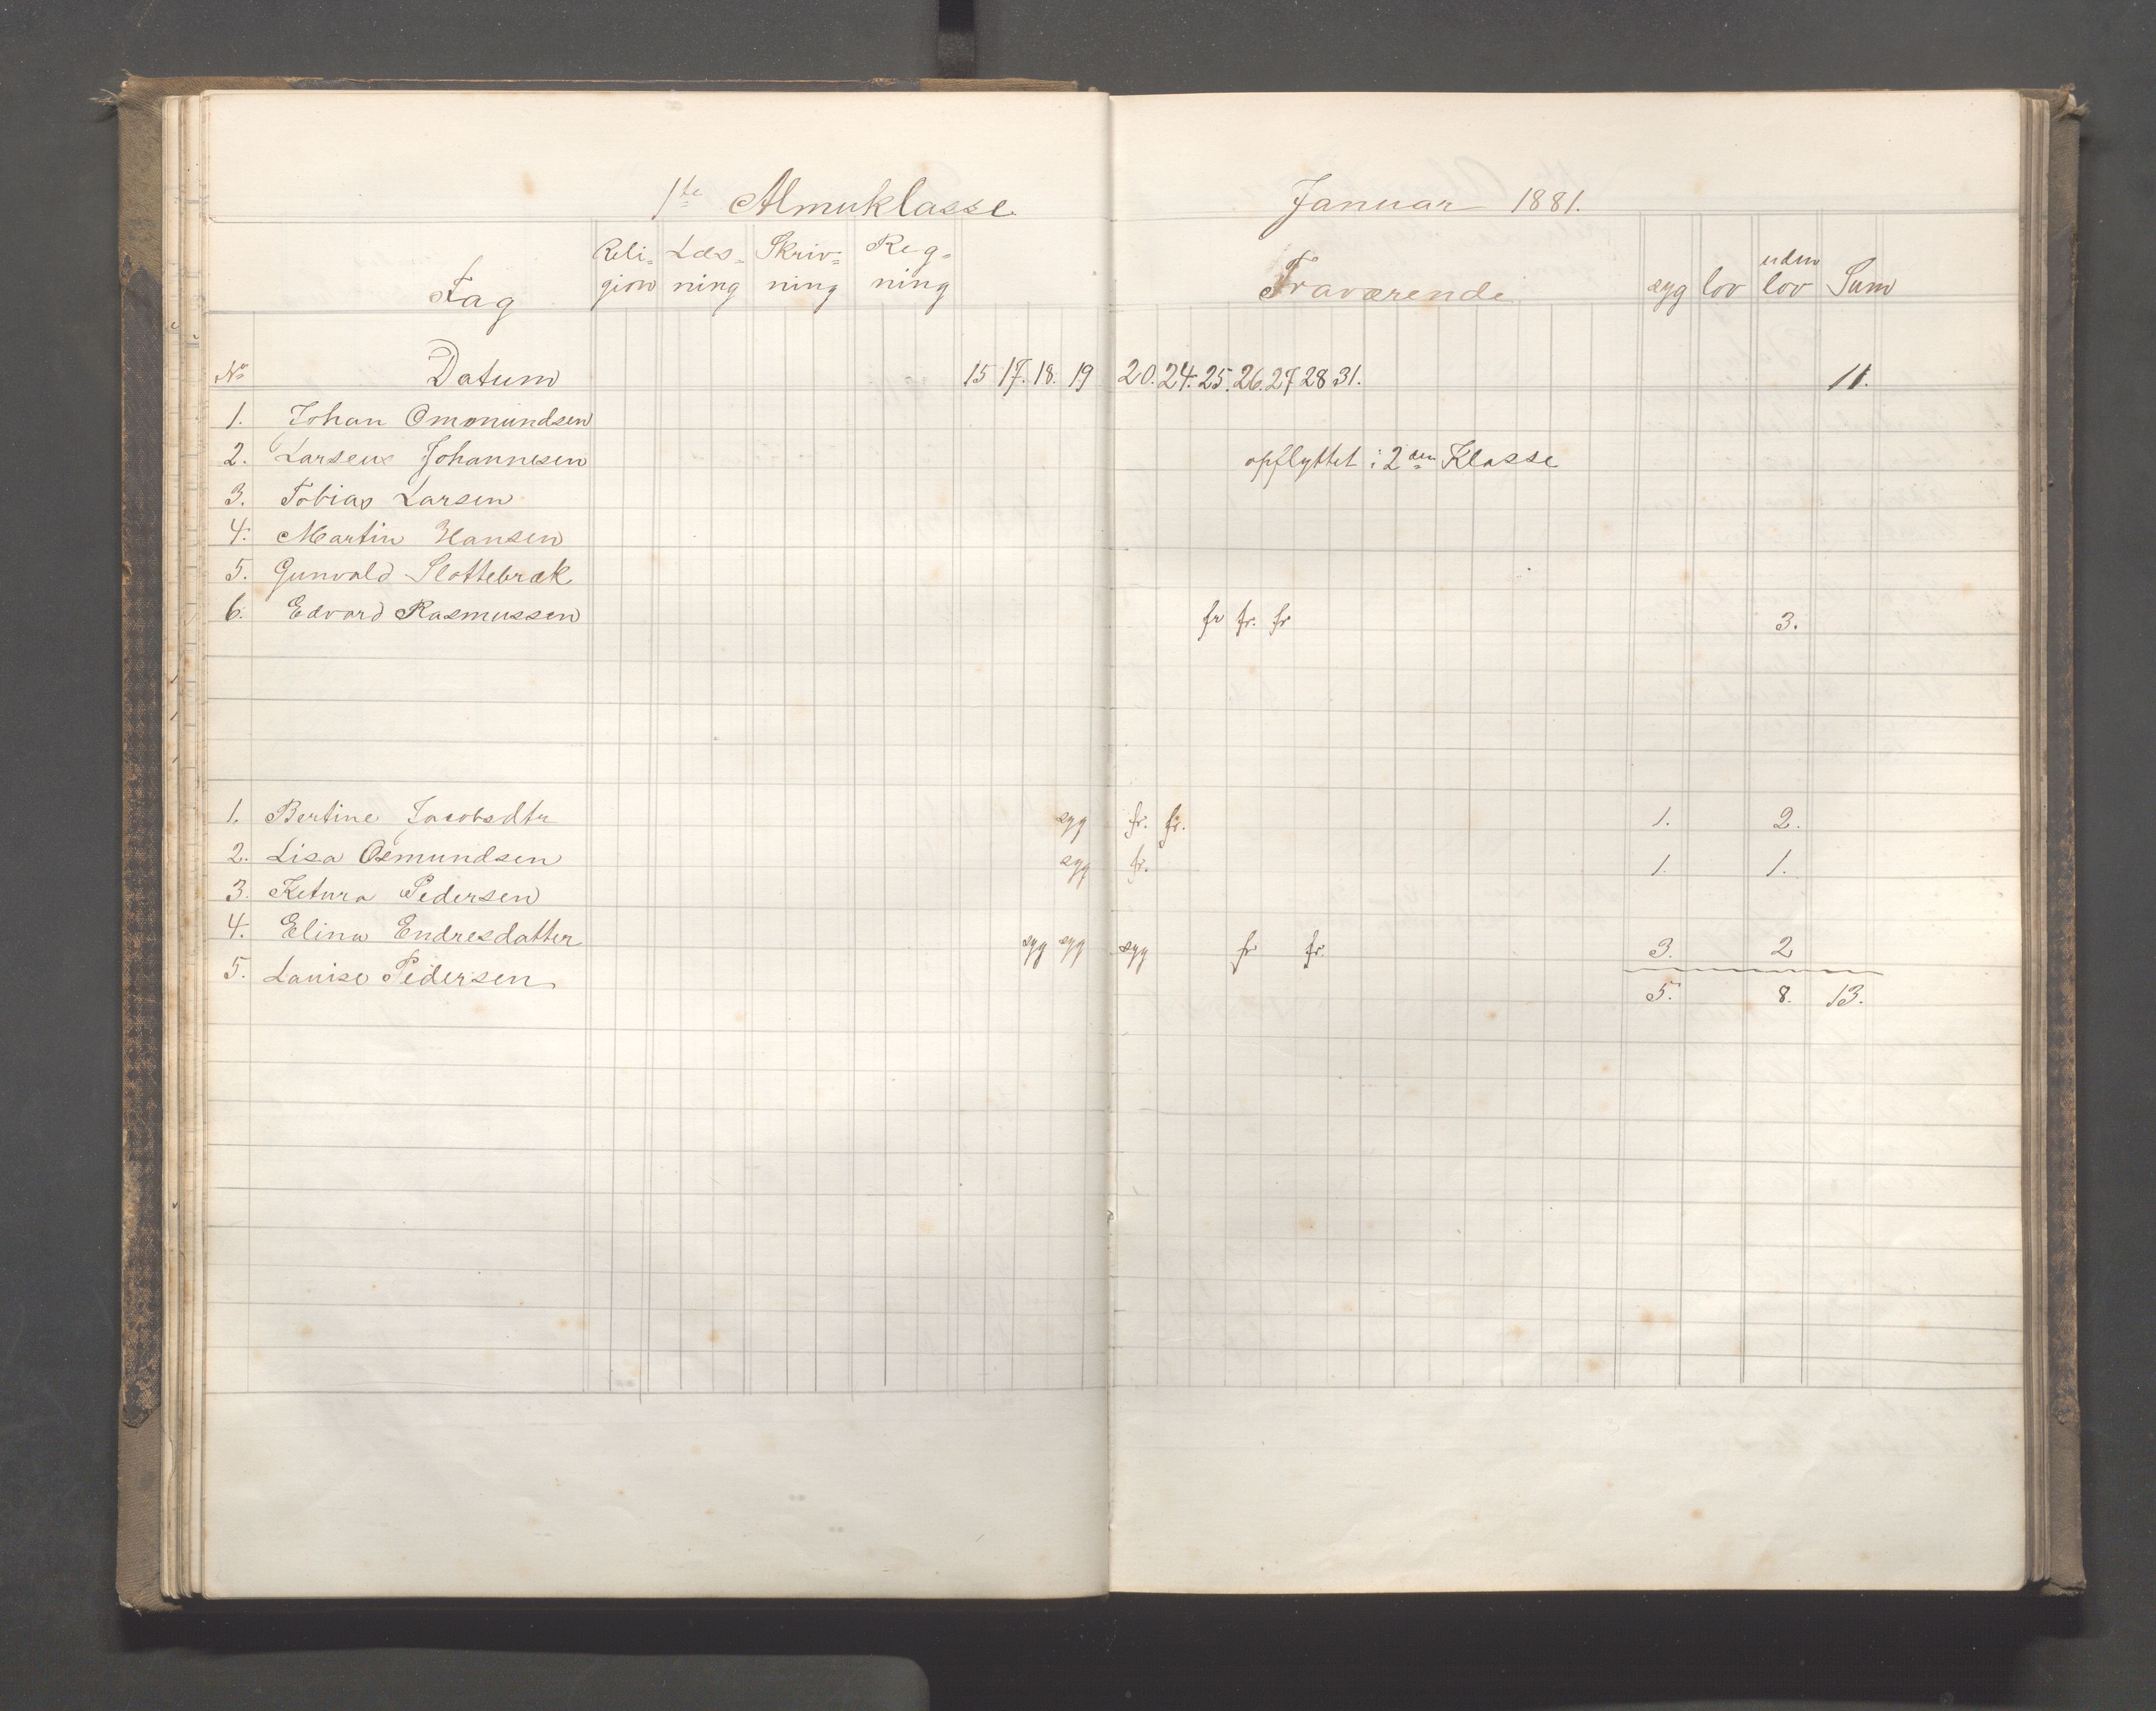 1ste Almuklasse Januar 1881.
Fag Reli- Læs- Skriv- Reg- Fraværende syg lov uden Sum
gion ning ning ning lov
No Datum 15 17. 18. 19 20. 24. 25. 26. 27 28 31. 11.
1. Johan Ommundsen
2. Larsene Johannesen opflyttet i 2den Klasse
3. Tobias Larsen
4. Martin Hansen
5. Gunvald Slottebræk
6. Edvard Rasmussen fr fr. fr 3.
1. Bertine Jacobsdtr syg fr. fr. 1. 2.
2. Lisa Osmundsen syg fr. 1. 1.
3. Ketura Pedersen
4. Elina Endresdatter syg syg syg fr fr. 3. 2
5. Lauise Pedersen 5. 8. 13.